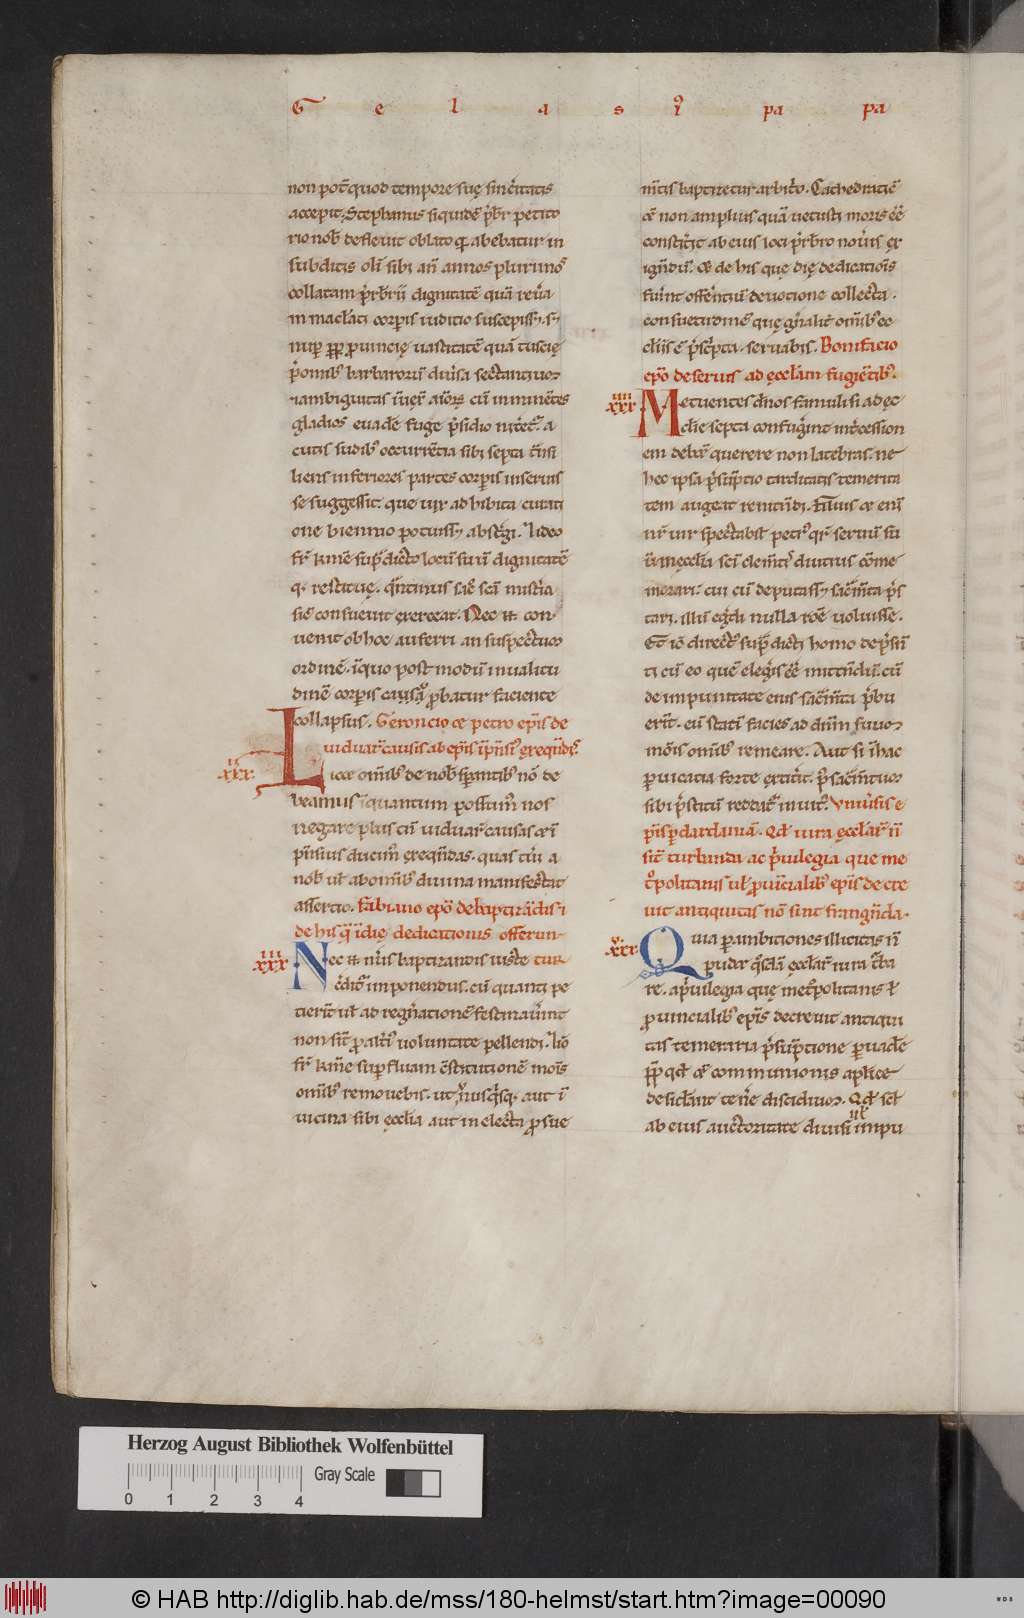 G e l a s i' pa pa
non pot̄ quod tempore suę sinc̓itatis
accepit. Stephanus siquidē p̄br̄ petito
rio nob̄ defleuit oblato qđ abebatur in
subditis olī sibi an̄ annos plurimos
collatam p̄rb̄rij dignitatē quā reūa
in maculati corporis iuditio suscepiss;. S;
nup̄ pp̄ prouincię uastitatē quā tuscię
p̄ omnib; barbarorū diuīsa sectantiuor
gladios euadē fuge p̄sidio
cutis sudib; occurrētia sibi septa
liens inferiores partes corporis inseruis
se suggessit. que uix adhibita curati
one biennio potuiss; abst̄gi. Ideo
fr̄ k̄mē sup̄dicto locū suū dignitatē
q; restituę. q̄tinus sac̄ sc̄i mist̄ia
sic̄ consueuit exerceat. Nec .n. con
uenit ob hoc auferri
ordinē. quo post modū inualitu
dinē corporis causa probatur faciente
collapsus. Geroncio et petro ep̄is de
uiduar̄ causis ab ep̄is
xxx.ii. Licet om̄ib; de nob̄ sperantib; nō de
beamus inquantum possum; nos
negare plus tn̄ uiduar̄ causas et
p̄ensius ducim; exeq̄ndas. quas
nob̄ ul̄ ab omnib; diuina manifestat
assertio. Fabiuio ep̄o de baptizādis
de his q̄ in die dedicationis offerun
xxx.iii. Nec .n. nimis baptizandis iuste tur
imponendus. cū quanti pe
tierit ul̄ ad regn̄ationē festinauīnt
non sit pro alt̄i; uoluntate pellendi. Iō
fr̄ k̄mē superfluam c̄stitutionē mois
om̄ib; remouebis. ut un̄usq̄sq; aut ī
uicina sibi ęcclia aut in electa pro sue
m̄tis baptizetur arbit̄o. Cathedraticū
et̄ non amplius quā uetusti moris ee̅
constit̄it ab eius loci p̄rb̄ro nou̓is ex
ign̄dū. Et de his que die dedicatiois
fuīnt offerentiū deuotione collecta.
consuetudinē quę gn̄alit̄ om̄ib; ec
cliis ē p̄scīpta. seruabis. Bonifacio
ep̄o de seruis ad ęccl̄am fugiētib;.
xxx.iiii. Metuentes dn̄os famuli si ad ęc
clie septa confuḡint int̄cession
em debn̄t querere non latebras. ne
hec ipsa p̄sūptio tarditatis temerita
tem augeat renitn̄di. Filius et eni
nr̄ uir spectabil̄ petr; qr̄ seruū su
ū in ęcclia sc̄i clem̄ti; diutius cōme
morari. cui cū deputass; sac̄m̄ta p̄s
tari. illū egr̄di nulla rōē uoluisse.
Et iō direct; sup̄dicti homo dep̄sn̄
ti cū eo quē eleḡis ee̅ mittn̄dū. cū
de impunitate eius sac̄m̄ta p̄bu
erit. eū stati facies ad dn̄m suuor
mōis om̄ib; remeare. Aut si ī hac
peruicatia forte extit̄it. p̄ sac̄m̄tuor
sibi p̄stitū reddat̄ inuit;. Vniūsis e
p̄is per dardaniā. Qđ iura ęccl̄ar̄ ñ
sic̄ turbanda ac p̄uilegia que me
t̄opolitanis ul̄ prouīcialib; ep̄is decre
uit antiquitas nō sint frangn̄da.
xxx.v. Quia per ambitiones illicitas ñ
pudet q̄sdā ęccl̄ar̄ iura t̄ba
re. ap̄uilegia quę met̄opolitanis ul̄
prouincialib; ep̄is decreuit antiqui
tas temeraria p̄sūptione peruadē
pp̄ qđ et̄ communionis aplice
desiderant tenē discidiuor. Qđ scl̄
ab eius auctoritate diuisi ul̄ impu
Herzog August Bibliothek Wolfenbüttel
Gray Scale
0 1 2 3 4
© HAB http://diglib.hab.de/mss/180-helmst/start.htm?image=00090